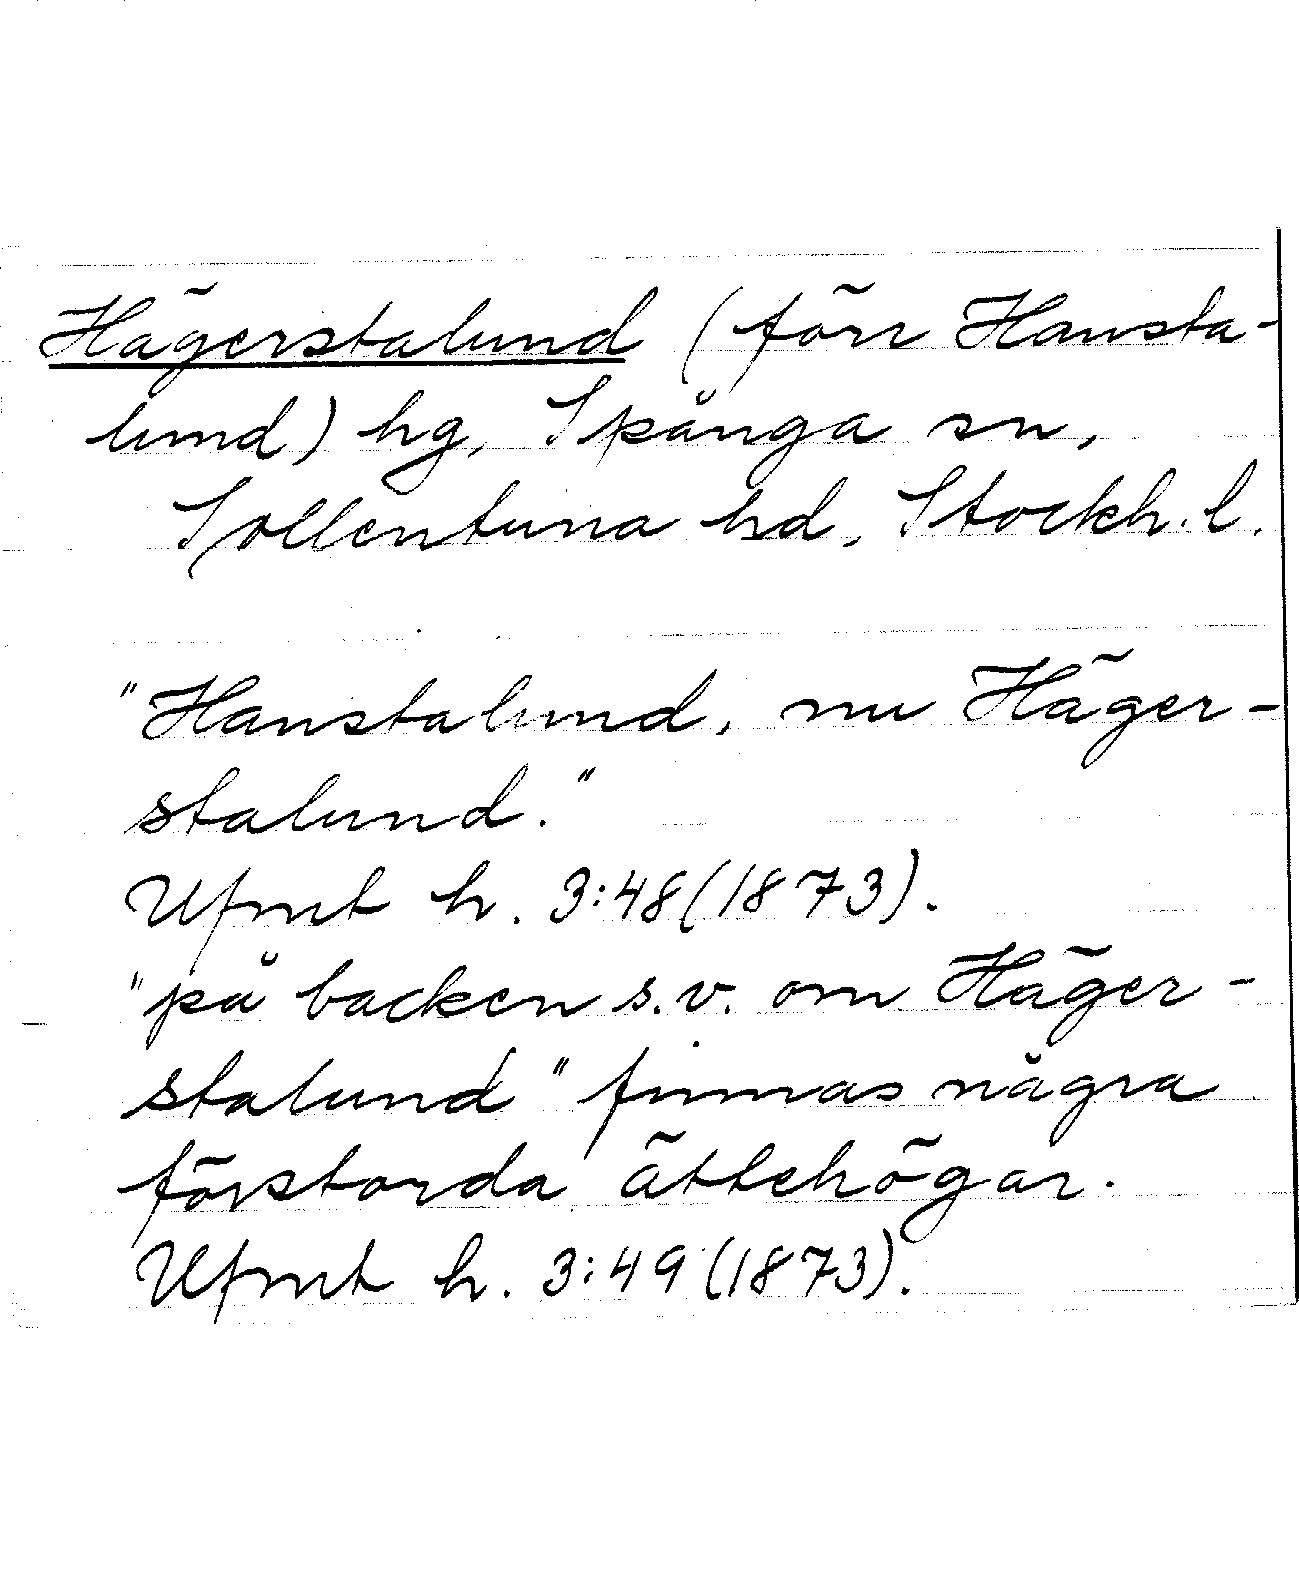 Hägerstalund (förr Hansta-
lund) hg, Spånga sn,
Sollentuna hd, Stockh. l.
"Hanstalund, nu Häger-
stalund."
Ufmt h. 3:48(1873).
"på backen s.v. om Häger-
stalund" finnas några
förstorda ättehögar.
Ufmt h. 3:49 (1873).